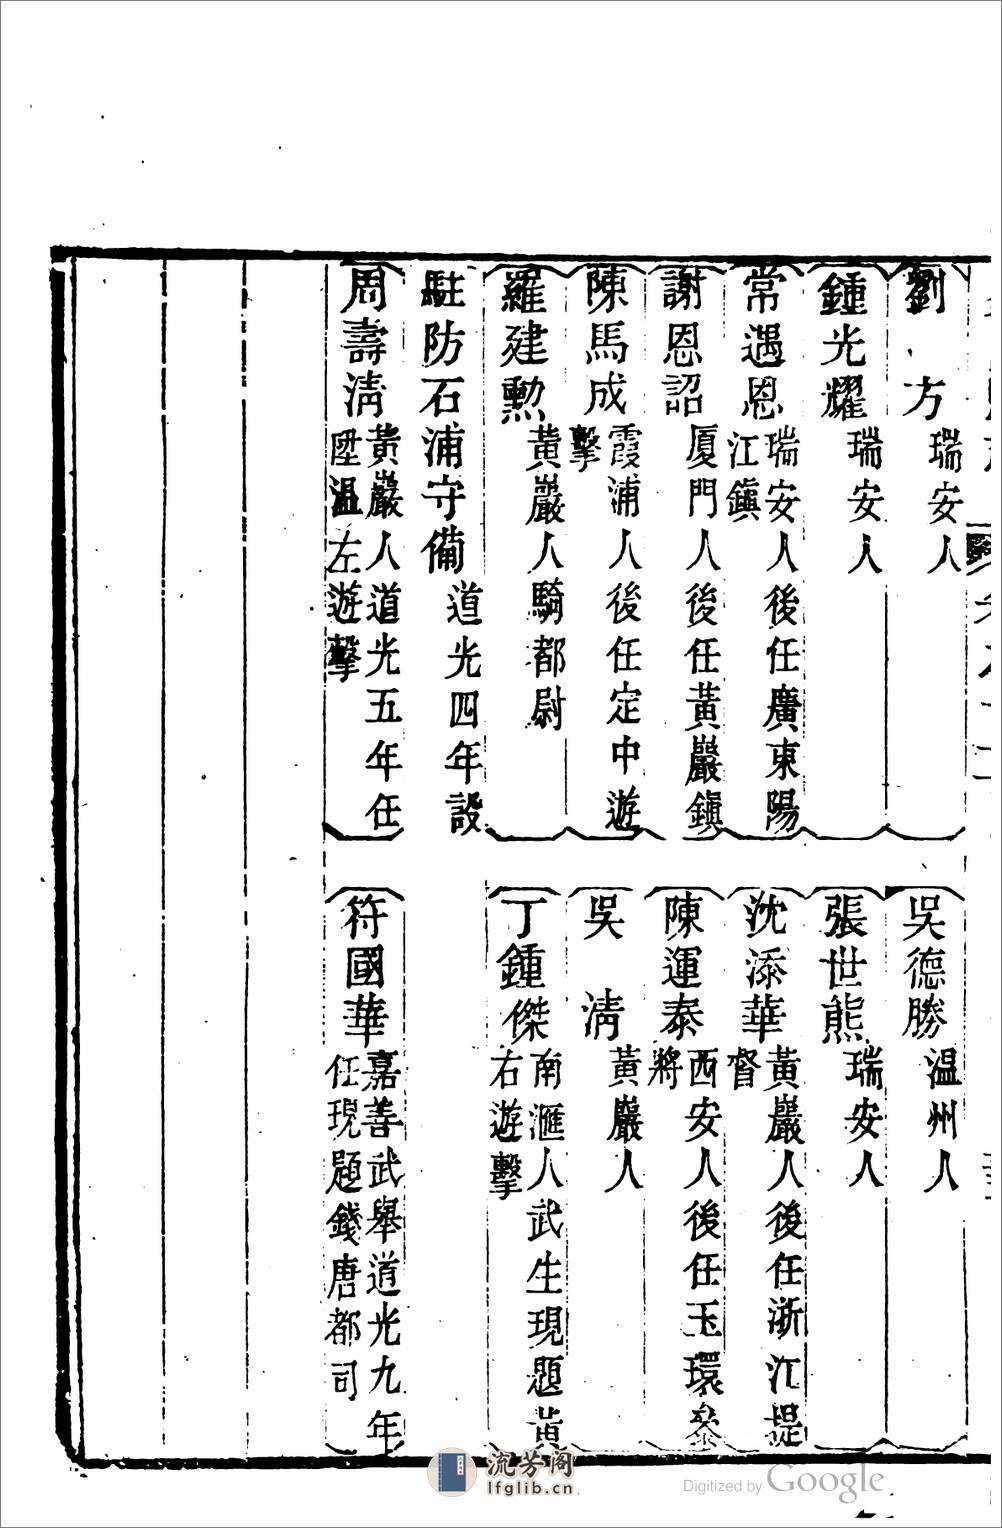 劉方 瑞安人
吳德勝 温州人
鍾光耀 瑞安人
張世熊 瑞安人
常遇恩 瑞安人後任廣東陽江鎮
沈添華 黃巖人後任浙江提督
謝恩詔 厦門人後任黃巖鎮
陳運泰 西安人後任玉環參將
陳馬成 霞浦人後任定中遊擊
吳清 黃巖人
羅建勲 黃巖人騎都尉
丁鍾傑 南滙人武生現題黃右遊擊
駐防石浦守備 道光四年設
周壽淸 黃巖人道光五年任陞温左遊擊
符國華 嘉善武舉道光九年任現題錢唐都司
流芳阁
lfglib.cn
Digitized by Google